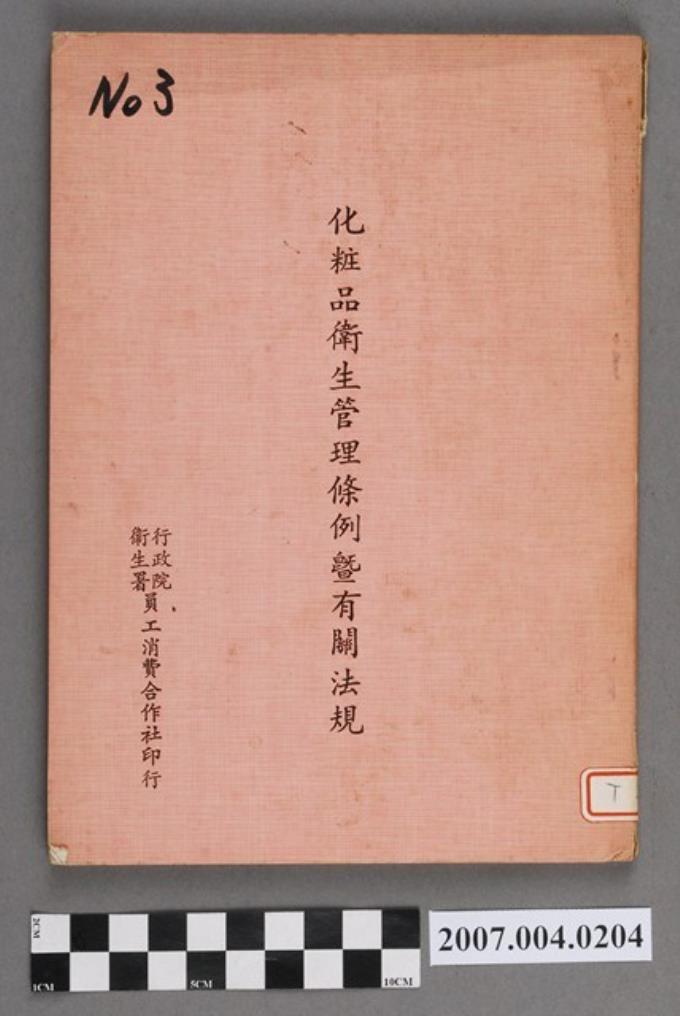 No 3
化粧品衛生管理條例暨有關法規
行政院
衛生署
員工消費合作社印行
T
2CM
1CM
5CM
10CM
2007.004.0204